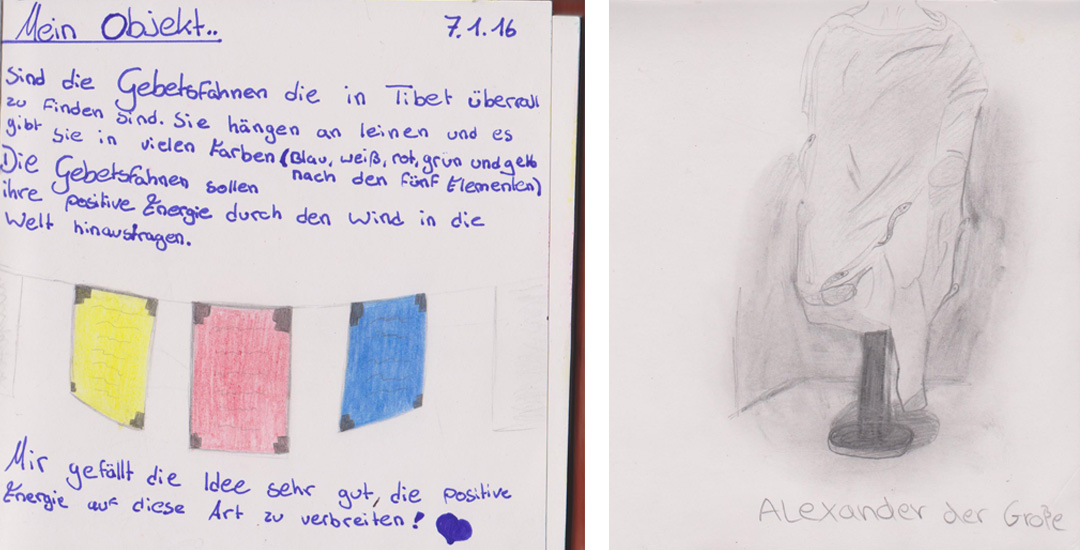 Mein Objekt..
7.1.16
Sind die Gebetsfahnen die in Tibet überall
zu finden sind. Sie hängen an leinen und es
gibt sie in vielen Farben (Blau, weiß, rot, grün und gelb
nach den fünf Elementen)
Die Gebetsfahnen sollen
ihre positive Energie durch den Wind in die
Welt hinaustragen.
Mir gefällt die Idee sehr gut, die positive
Energie auf diese Art zu verbreiten!
Alexander der Große